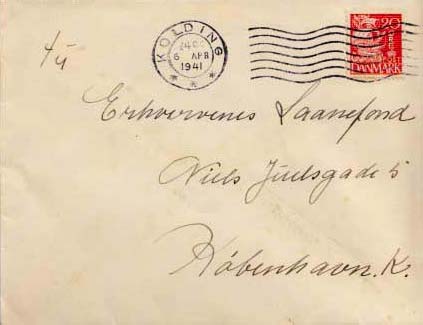 KOLDING
24 00
6 APR
1941
20
POST
DANMARK
Til
Erhvervenes Laanefond
Niels Juelsgade 5
København. K.